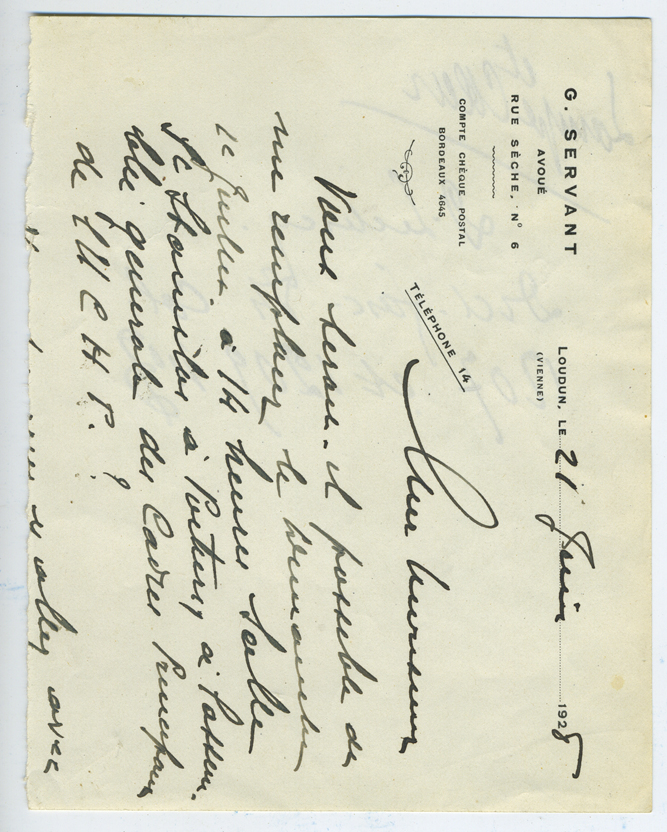 G. SERVANT
AVOUÉ
RUE SÈCHE, N° 6
COMPTE CHÈQUE POSTAL
BORDEAUX 4645
TÉLÉPHONE 14
LOUDUN, LE 21 Juin 1928
(VIENNE)
Cher Monsieur
Vous serait-il possible de
me remplacer le Dimanche
1er Juillet à 14 heures Salle
St Stanislas à Poitiers à l'assem-
blée générale des Cadres Principaux
de l'U C H P. ?
allez avec